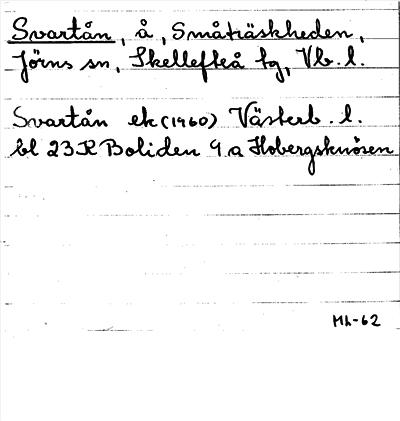 Svartån, å, Småträskheden,
Jörns sn, Skellefteå tg, Vb. l.
Svartån ek (1960) Västerb. l.
bl 23K Boliden 9a Hobergsknösen
Mh-62